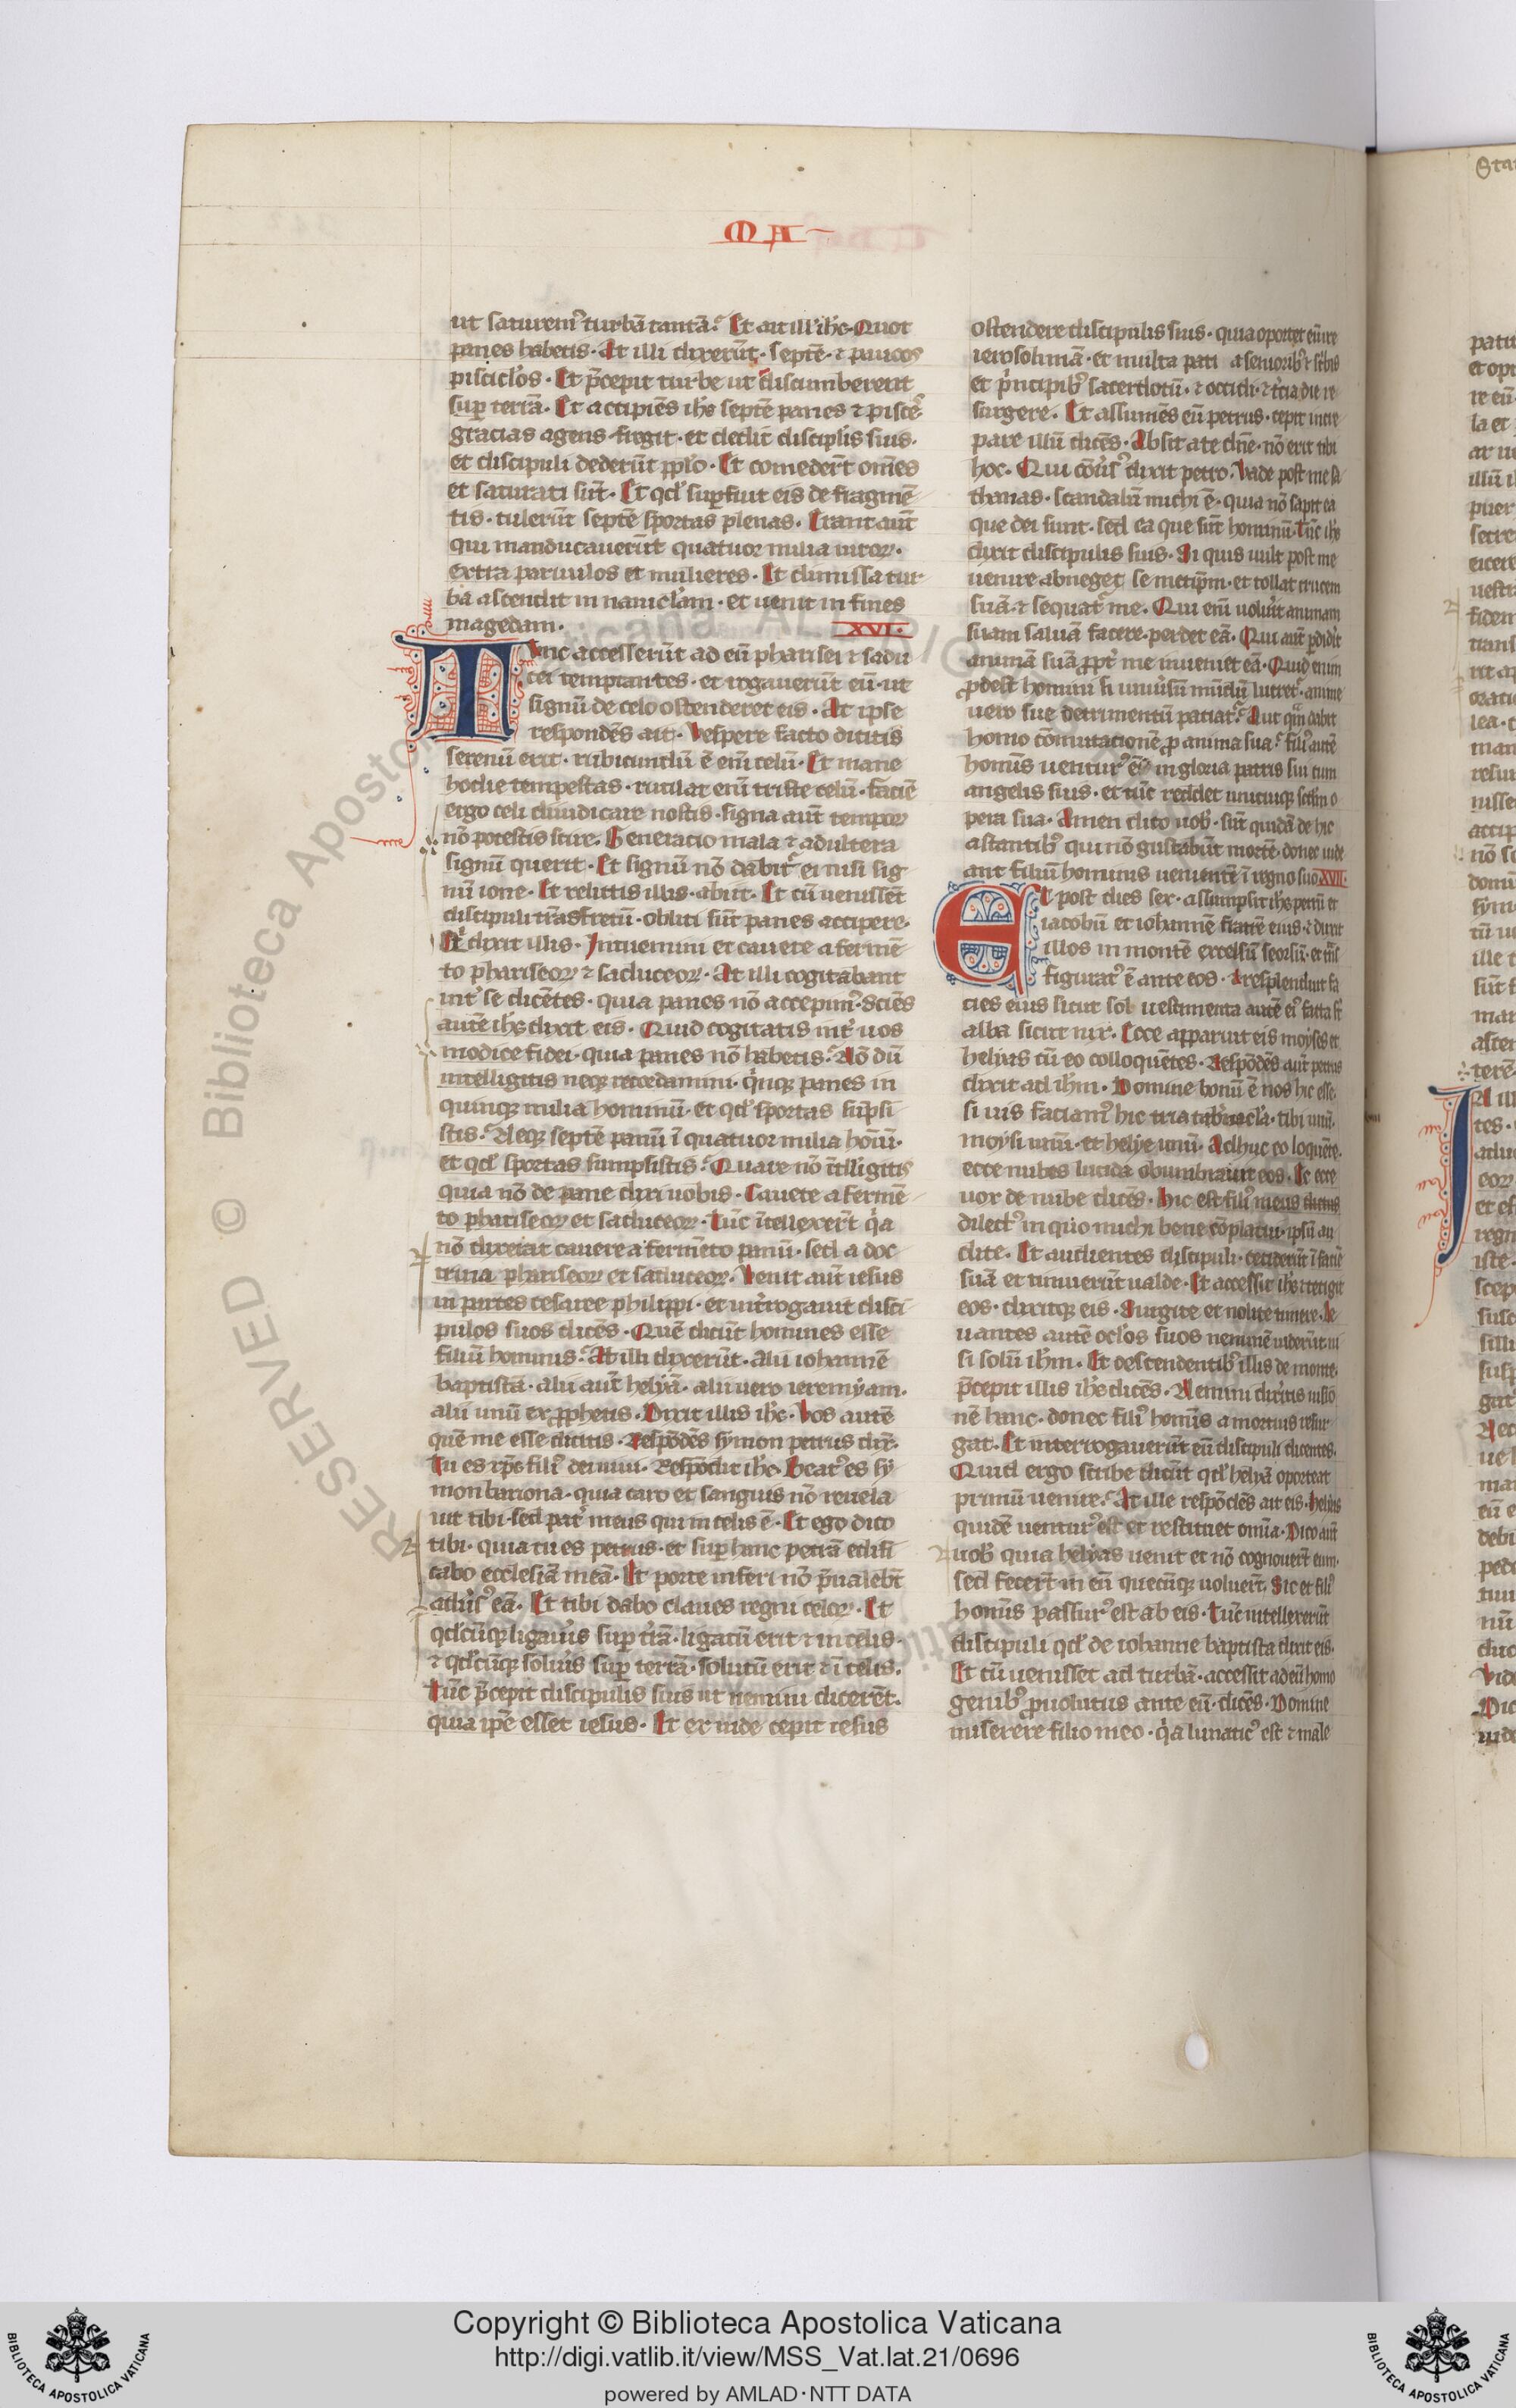 MA
ut saturem᷒ turbā tantā. Et ait ill' ih̄c. Quot
panes habetis. At illi dixerūt. septē. ⁊ paucos
piscicl'os. Et p̄cepit turbe ut discumberent
suꝑ terrā. Et accipiēs ih̄s septē panes ⁊ pisces
gracias agens fregit. et dedit discipl'is suis.
et discipuli dederūt pp̄lo. Et comeder̄t om̄es
et saturati sūt. Et qd' suꝑfuit eis de fragmē
tis. tulerūt septē sportas plenas. Erant aūt
qui manducauerūt quatuor milia uiroꝝ.
extra paruulos et mulieres. Et dimissa tur
ba ascendit in nauicl'am. et uenit in fines
magedam. XVI.
Tunc accesserūt ad eū pharisei ⁊ sadu
cei temptantes. et rogauerūt eū. ut
signū de celo ostenderet eis. At ipse
respondēs ait. Vespere facto dicitis
serenū erit. rubicundū ē eni᷒ celū. Et mane
hodie tempestas. rutilat eni᷒ triste celū. faciē
ergo celi diiudicare nostis. signa aūt tempoꝝ
nō potestis scire. Generacio mala ⁊ adultera
signū querit. Et signū nō dabit᷒ ei nisi sig
nū ione. Et relictis illis. abiit. Et cū uenissēt
discipuli trās fretū. obliti sūt panes accipere.
Qͥ dixit illis. Intuemini et cauete a fermē
to phariseoꝝ ⁊ saduceoꝝ. At illi cogitabant
int̄ se dicētes. quia panes nō accepim᷒. Sciēs
autē ih̄s dixit eis. Quid cogitatis int̄ uos
modice fidei. quia panes nō habetis. Nō dū
intelligitis neqꝫ recordamini. qͥnqꝫ panes in
quinqꝫ milia hominū. et qd' sportas sūpsi
stis. Neqꝫ septē panū ī quatuor milia hoīū.
et qd' sportas sumpsistis. Quare nō ītlligitis
quia nō de pane dixi uobis. Cauete a fermē
to phariseoꝝ et saduceoꝝ. Tūc ītellexer̄t qͥa
nō dixerat cauere a fermēto panū. sed a doc
trina phariseoꝝ et saduceoꝝ. Venit aūt iesus
in partes cesaree philippi. et int̄rogauit disci
pulos suos dicēs. Quē dicūt homines esse
filiū hominis. At illi dixerūt. Alii iohannē
baptistā. alii aūt helyā. alii uero ieremyam.
alii unū ex ꝓphetis. Dixit illis ih̄c. Vos autē
quē me esse dicitis. Respōdēs symon petrus dix̄.
Tu es xp̄s fili᷒ dei uiui. Respōdit ih̄c. Beat᷒ es sy
mon bariona. quia caro et sanguis nō reuela
uit tibi. sed pat̄ meus qui in celis ē. Et ego dico
tibi. quia tu es petrus. et suꝑ hanc petrā edifi
cabo ecclesiā meā. Et porte inferi nō p̄ualebūt
adūs᷒ eā. Et tibi dabo claues regni celoꝝ. Et
qd'cūqꝫ ligaūis suꝑ t̄rā. ligatū erit ⁊ in celis.
⁊ qd'cūqꝫ solūis suꝑ terrā. solutū erit ⁊ ī celis.
Tūc p̄cepit discipulis suis ut nemini dicerēt.
quia ip̄e esset iesus. Et ex inde cepit iesus
ostendere discipulis suis. quia oportet eū ire
ierosolimā. et multa pati a seniorib᷒ ⁊ scͥbis
et pͥncipib᷒ sacerdotū. ⁊ occidi. ⁊ t̄cia die re
surgere. Et assumēs eū petrus. cepit incre
pare illū dicēs. Absit a te dn̄e. nō erit tibi
hoc. Qui cōūs᷒ dixit petro. Vade post me sa
thanas. scandalū michi ē. quia nō sapis ea
que dei sunt. sed ea que sūt hominū. Tūc ih̄s
dixit discipulis suis. Si quis uult post me
uenire abneget se metip̄m. et tollat crucem
suā. ⁊ sequat᷒ me. Qui eni᷒ uolūit animam
suam saluā facere. perdet eā. Qui aūt ꝑdidīt
animā suā ꝓpt̄ me inueniet eā. Quid enim
ꝓdest homini si uniūsū mūdū lucret᷒. anime
uero sue detrimentū patiat᷒. Aut qͣm dabit
homo cōmutacionē ꝓ anima sua. fili᷒ autē
homīs uentur᷒ ē in gloria patris sui cum
angelis suis. et tūc reddet unicuiqꝫ scdm o
pera sua. Amen dico uob᷒. sūt quidā de hic
astantib᷒ qui nō gustabūt mortē. donec uide
ant filiū hominis uenientē ī regno suo XVII.
Et post dies sex. assumpsit ih̄s petrū et
iacobū et iohannē fratrē eius. ⁊ duxit
illos in montē excelsū seorsū. et trās
figurat᷒ ē ante eos. ⁊ resplenduit fa
cies eius sicut sol. uestimenta autē ei᷒ facta sūt
alba sicut nix. Ecce apparuit eis moyses et
helyas cū eo colloquētes. Respōdēs aūt petrus
dixit ad ih̄m. Domine bonū ē nos hic esse.
si uis faciam᷒ hic tria tab̄nacl'a. tibi unū.
moysi unū. et helye unū. Adhuc eo loquēte.
ecce nubes lucida obumbrauit eos. Et ecce
uox de nube dicēs. Hic est fili᷒ meus
dilect᷒ in quo michi bene cōplacui. ipsū au
dite. Et audientes discipuli. ceciderūt ī faciē
suā et timuerūt ualde. Et accessit ih̄s ⁊ tetigit
eos. dixitqꝫ eis. Surgite et nolite timere. Le
uantes autē ocl'os suos neminē uiderūt ni
si solū ih̄m. Et descendentib᷒ illis de monte.
p̄cepit illis ih̄s dicēs. Nemini dix̄itis uisio
nē hanc. donec fili᷒ homīs a mortuis resur
gat. Et interrogauerūt eū discipuli dicentes.
Quid ergo scribe dicūt qd' helyā oporteat
primū uenire. At ille respōdēs ait eis. Helyas
quidē uentur᷒ est et restituet om̄ia. Dico aūt
uob᷒ quia helyas uenit et nō cognouer̄t eum.
sed fecer̄t in eū quecūqꝫ uoluer̄t. Sic et fili᷒
homīs passur᷒ est ab eis. Tūc intellexerūt
discipuli qd' de iohanne baptista dixit eis.
Et cū uenisset ad turbā. accessit ad eū homo
genib᷒ ꝓuolutus ante eū. dicēs. Domine
miserere filio meo. qͥa lunatic᷒ est ⁊ male
Copyright © Biblioteca Apostolica Vaticana
http://digi.vatlib.it/view/MSS_Vat.lat.21/0696
powered by AMLAD·NTT DATA